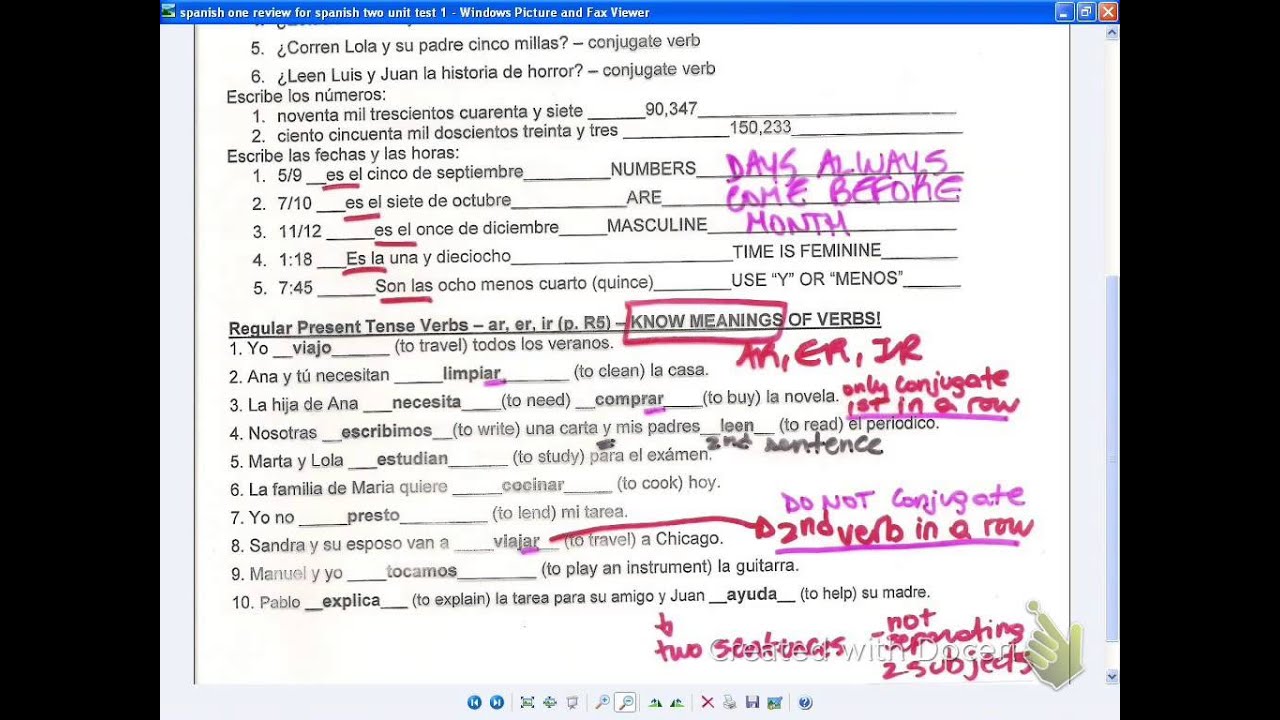 spanish one review for spanish two unit test 1 - Windows Picture and Fax Viewer
5. ¿Corren Lola y su padre cinco millas? – conjugate verb
6. ¿Leen Luis y Juan la historia de horror? – conjugate verb
Escribe los números:
1. noventa mil trescientos cuarenta y siete ______90,347______
2. ciento cincuenta mil doscientos treinta y tres ______150,233______
Escribe las fechas y las horas:
1. 5/9 __es el cinco de septiembre______NUMBERS___ DAYS ALWAYS
2. 7/10 ___es el siete de octubre______ARE______ COME BEFORE
3. 11/12 _____es el once de diciembre_____MASCULINE___ MONTH
4. 1:18 ___Es la una y dieciocho______TIME IS FEMININE______
5. 7:45 ______Son las ocho menos cuarto (quince)______USE “Y” OR “MENOS”______
Regular Present Tense Verbs – ar, er, ir (p. R5) – KNOW MEANINGS OF VERBS!
AR, ER, IR
1. Yo __viajo______ (to travel) todos los veranos.
2. Ana y tú necesitan _____limpiar______ (to clean) la casa.
3. La hija de Ana ___necesita____(to need) __comprar____(to buy) la novela. only conjugate
1st in a row
4. Nosotras __escribimos__(to write) una carta y mis padres__leen__ (to read) el periodico.
2nd sentence
5. Marta y Lola ___estudian______ (to study) para el exámen.
6. La familia de Maria quiere _____cocinar_____ (to cook) hoy.
DO NOT conjugate
7. Yo no _____presto_________ (to lend) mi tarea.
2nd verb in a row
8. Sandra y su esposo van a ____viajar__ (to travel) a Chicago.
9. Manuel y yo ____tocamos________ (to play an instrument) la guitarra.
10. Pablo __explica___ (to explain) la tarea para su amigo y Juan __ayuda__ (to help) su madre.
two sentences
- not
separating
2 subjects
Created with Doceri